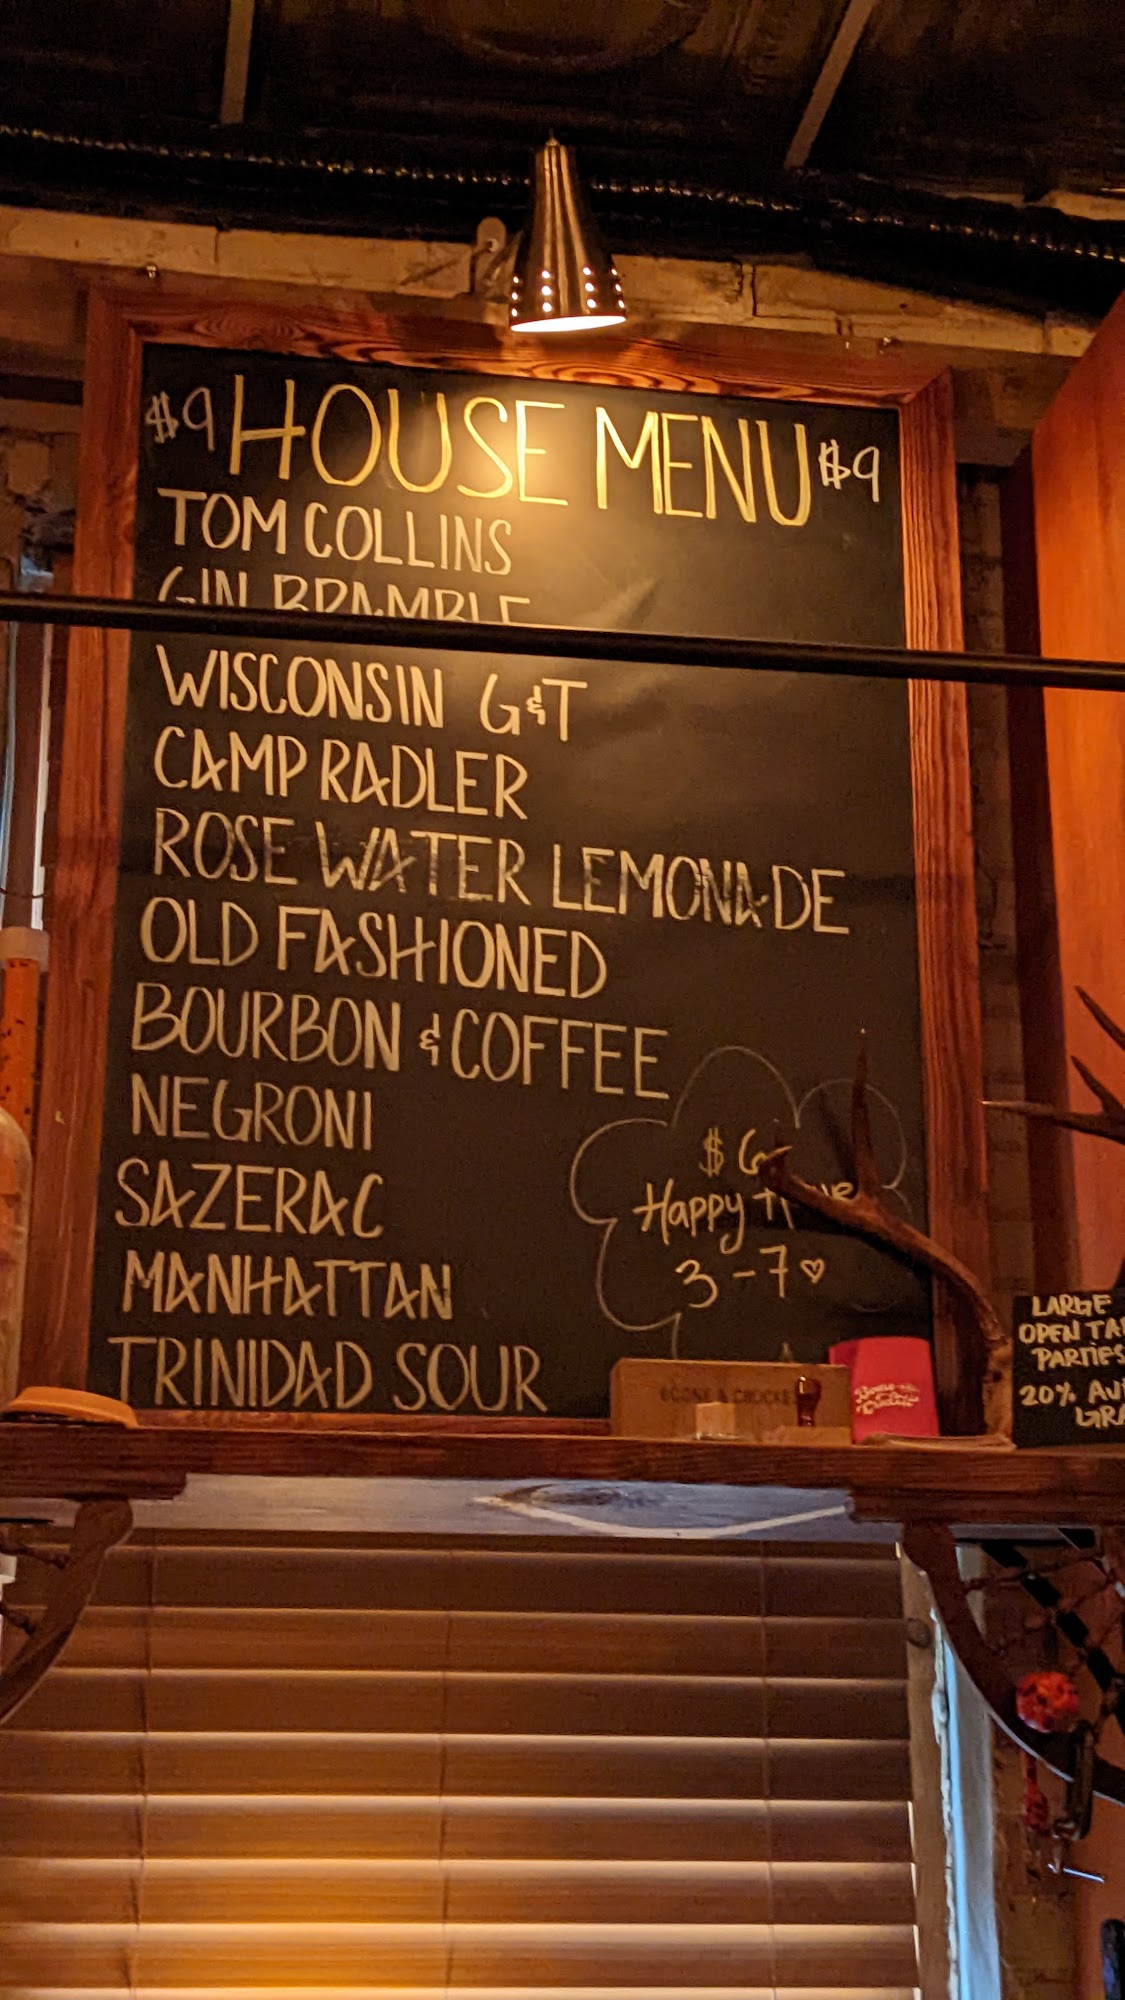 $9 HOUSE MENU $9
TOM COLLINS
GIN BRAMBLE
WISCONSIN G&T
CAMP RADLER
ROSE WATER LEMONADE
OLD FASHIONED
BOURBON & COFFEE
NEGRONI
SAZERAC
MANHATTAN
TRINIDAD SOUR
$6
Happy Hour
3-7♡
BOONE & CROCKE
LARGE
OPEN TA
PARTIES
20% AU
GRA